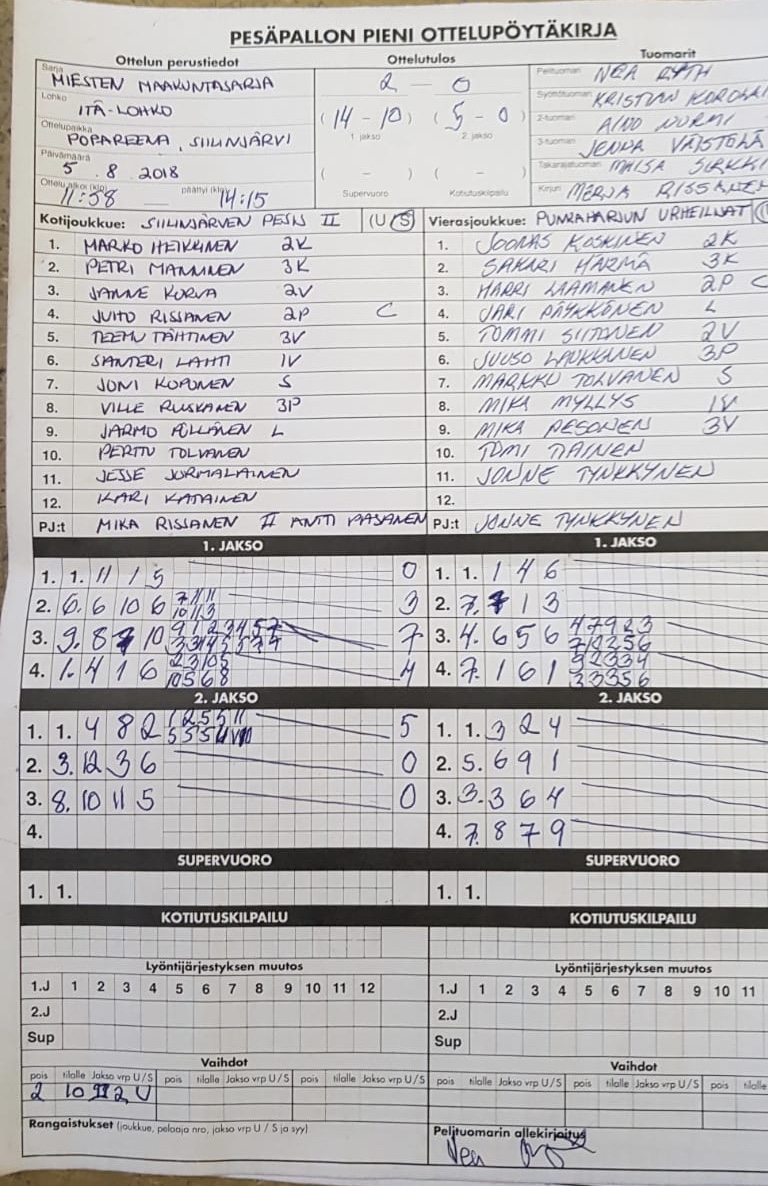 PESÄPALLON PIENI OTTELUPÖYTÄKIRJA
Ottelun perustiedot
Sarja
MIESTEN MAAKUNTASARJA
Lohko
ITÄ-LOHKO
Ottelupaikka
POPAREENA, SIILINJÄRVI
Päivämäärä
5.8.2018
Ottelu alkoi (klo) 11:58 päättyi (klo) 14:15
Ottelutulos
2 - 0
(14 - 10) (5 - 0)
1. jakso 2. jakso
( - ) ( - )
Supervuoro Kotiutuskilpailu
Tuomarit
Pelituomari NEA
Syöttötuomari KRISTIAN
2-tuomari AINO NURMI
3-tuomari JENNA VÄISTÖLÄ
Takarajatuomari MAISA
Kirjuri MERJA RISSANEN
Kotijoukkue: SIILINJÄRVEN PESIS II (U/S)
1. MARKO HEIKKINEN 2K
2. PETRI MANNINEN 3K
3. JANNE KORVA 2V
4. JUHO RISSANEN 2P C
5. TEEMU TÄHTINEN 3V
6. SANTERI LAHTI 1V
7. JONI KOPONEN S
8. VILLE RUUSKANEN 3P
9. JARMO PÖLLÄNEN L
10. PERTTU TOLVANEN
11. JESSE JORMALAINEN
12. KARI KATAINEN
PJ:t MIKA RISSANEN II ANTTI PASANEN
Vierasjoukkue: PUNKAHARJUN URHEILIJAT (
1. JOONAS KOSKINEN 2K
2. SAKARI HÄRMÄ 3K
3. HARRI LAAMANEN 2P C
4. JARI PÄYKKÖNEN L
5. TOMMI SIITONEN 2V
6. JUUSO LAUKKANEN 3P
7. MARKKU TOLVANEN S
8. MIKA MYLLYS 1V
9. MIKA PESONEN 3V
10. TOMI TIAINEN
11. JONNE TYNKKYNEN
12.
PJ:t JONNE TYNKKYNEN
1. JAKSO
1. 1. 11 1 5 0
2. 6. 6 10 6 3
3. 9. 8 10 7
4. 1. 4 1 6 4
2. JAKSO
1. 1. 4 8 2 5
2. 3. 12 3 6 0
3. 8. 10 11 5 0
4.
SUPERVUORO
1. 1.
KOTIUTUSKILPAILU
Lyöntijärjestyksen muutos
1.J 1 2 3 4 5 6 7 8 9 10 11 12
2.J
Sup
Vaihdot
pois tilalle Jakso vrp U/S pois tilalle Jakso vrp U/S pois tilalle Jakso vrp U/S
2 10 II 2 U
Rangaistukset (joukkue, pelaaja nro, jakso vrp U / S ja syy)
1. JAKSO
1. 1. 1 4 6
2. 7. 1 3
3. 4. 6 5 6
4. 7. 1 6 1
2. JAKSO
1. 1. 3 2 4
2. 5. 6 9 1
3. 3. 3 6 4
4. 7. 8 7 9
SUPERVUORO
1. 1.
KOTIUTUSKILPAILU
Lyöntijärjestyksen muutos
1.J 1 2 3 4 5 6 7 8 9 10 11
2.J
Sup
Vaihdot
pois tilalle Jakso vrp U/S pois tilalle Jakso vrp U/S pois
Pelituomarin allekirjoitus